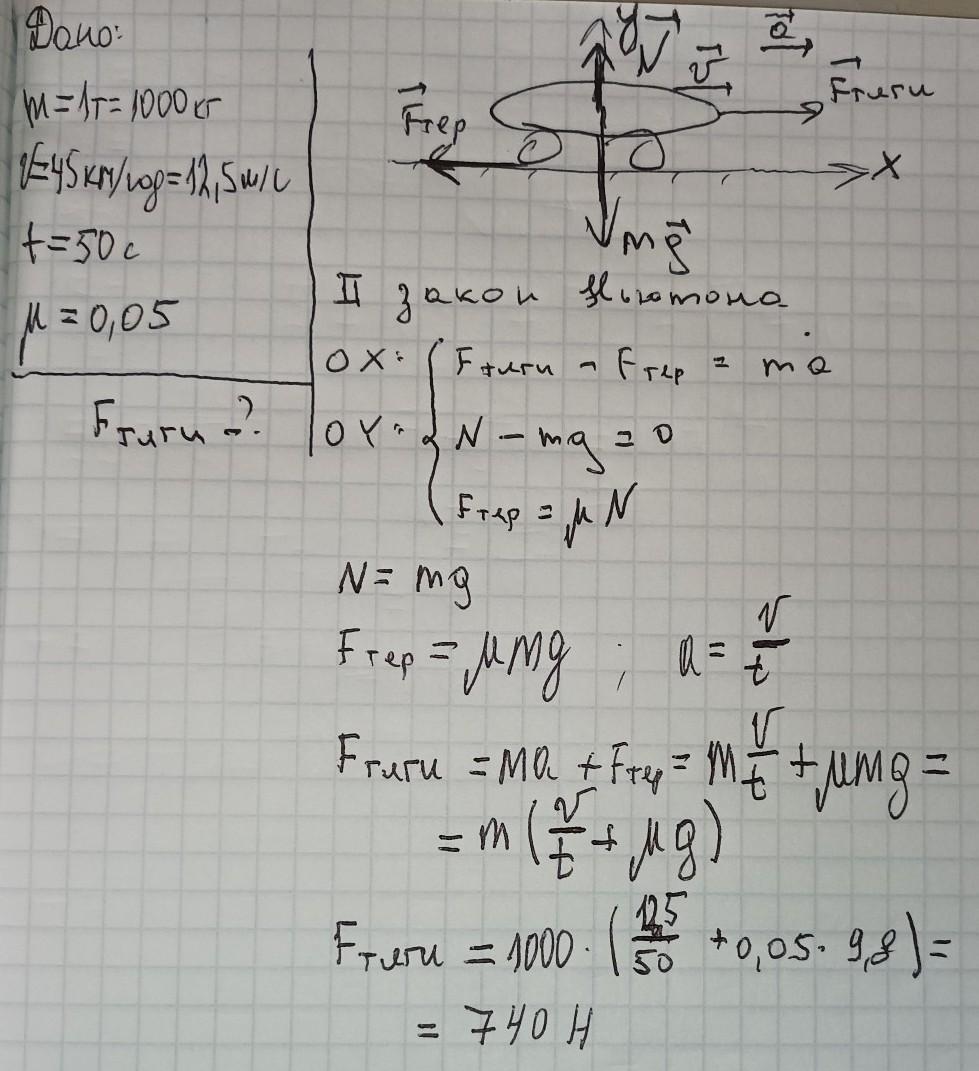 Дано:
m = 1т = 1000 кг
v = 45 км/год = 12,5 м/с
t = 50 с
μ = 0,05
Fтяги - ?
y N v a
Fтяги
Fтер
X
mg
II закон Ньютона
OX: Fтяги - Fтер = ma
OY: N - mg = 0
Fтер = μN
N = mg
Fтер = μmg ; a = v/t
Fтяги = ma + Fтер = m v/t + μmg =
= m (v/t + μg)
Fтяги = 1000 · (12,5/50 + 0,05 · 9,8) =
= 740 Н